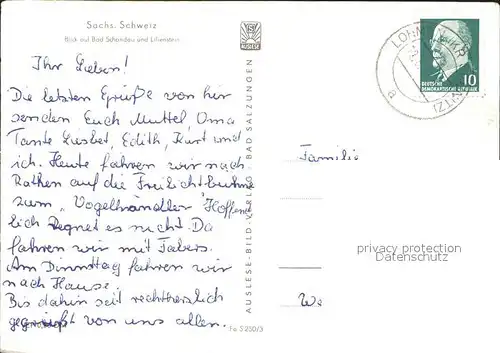 Sächs. Schweiz
Blick auf Bad Schandau und Lilienstein
Ihr Lieben!
Die letzten Grüße von hir
senden Euch Muttel, Oma
Tante Liesbet, Edith, Kurt und
ich. Heute fahren wir nach
Rathen auf die Freilichtbuhne
zum „Vogelhändler" Hoffent
lich Regnet es nicht. Da
fahren wir mit Fabers.
Am Dinnstag fahren wir
nach Hause.
Bis dahin seit rechtherzlich
gegrüßt von uns allen.
AUSLESE-BILD-VERLAG · BAD SALZUNGEN
Fa S 250/3
LOHMEN
10
DEUTSCHE
DEMOKRATISCHE REPUBLIK
a
Familie
We
privacy protection
Datenschutz